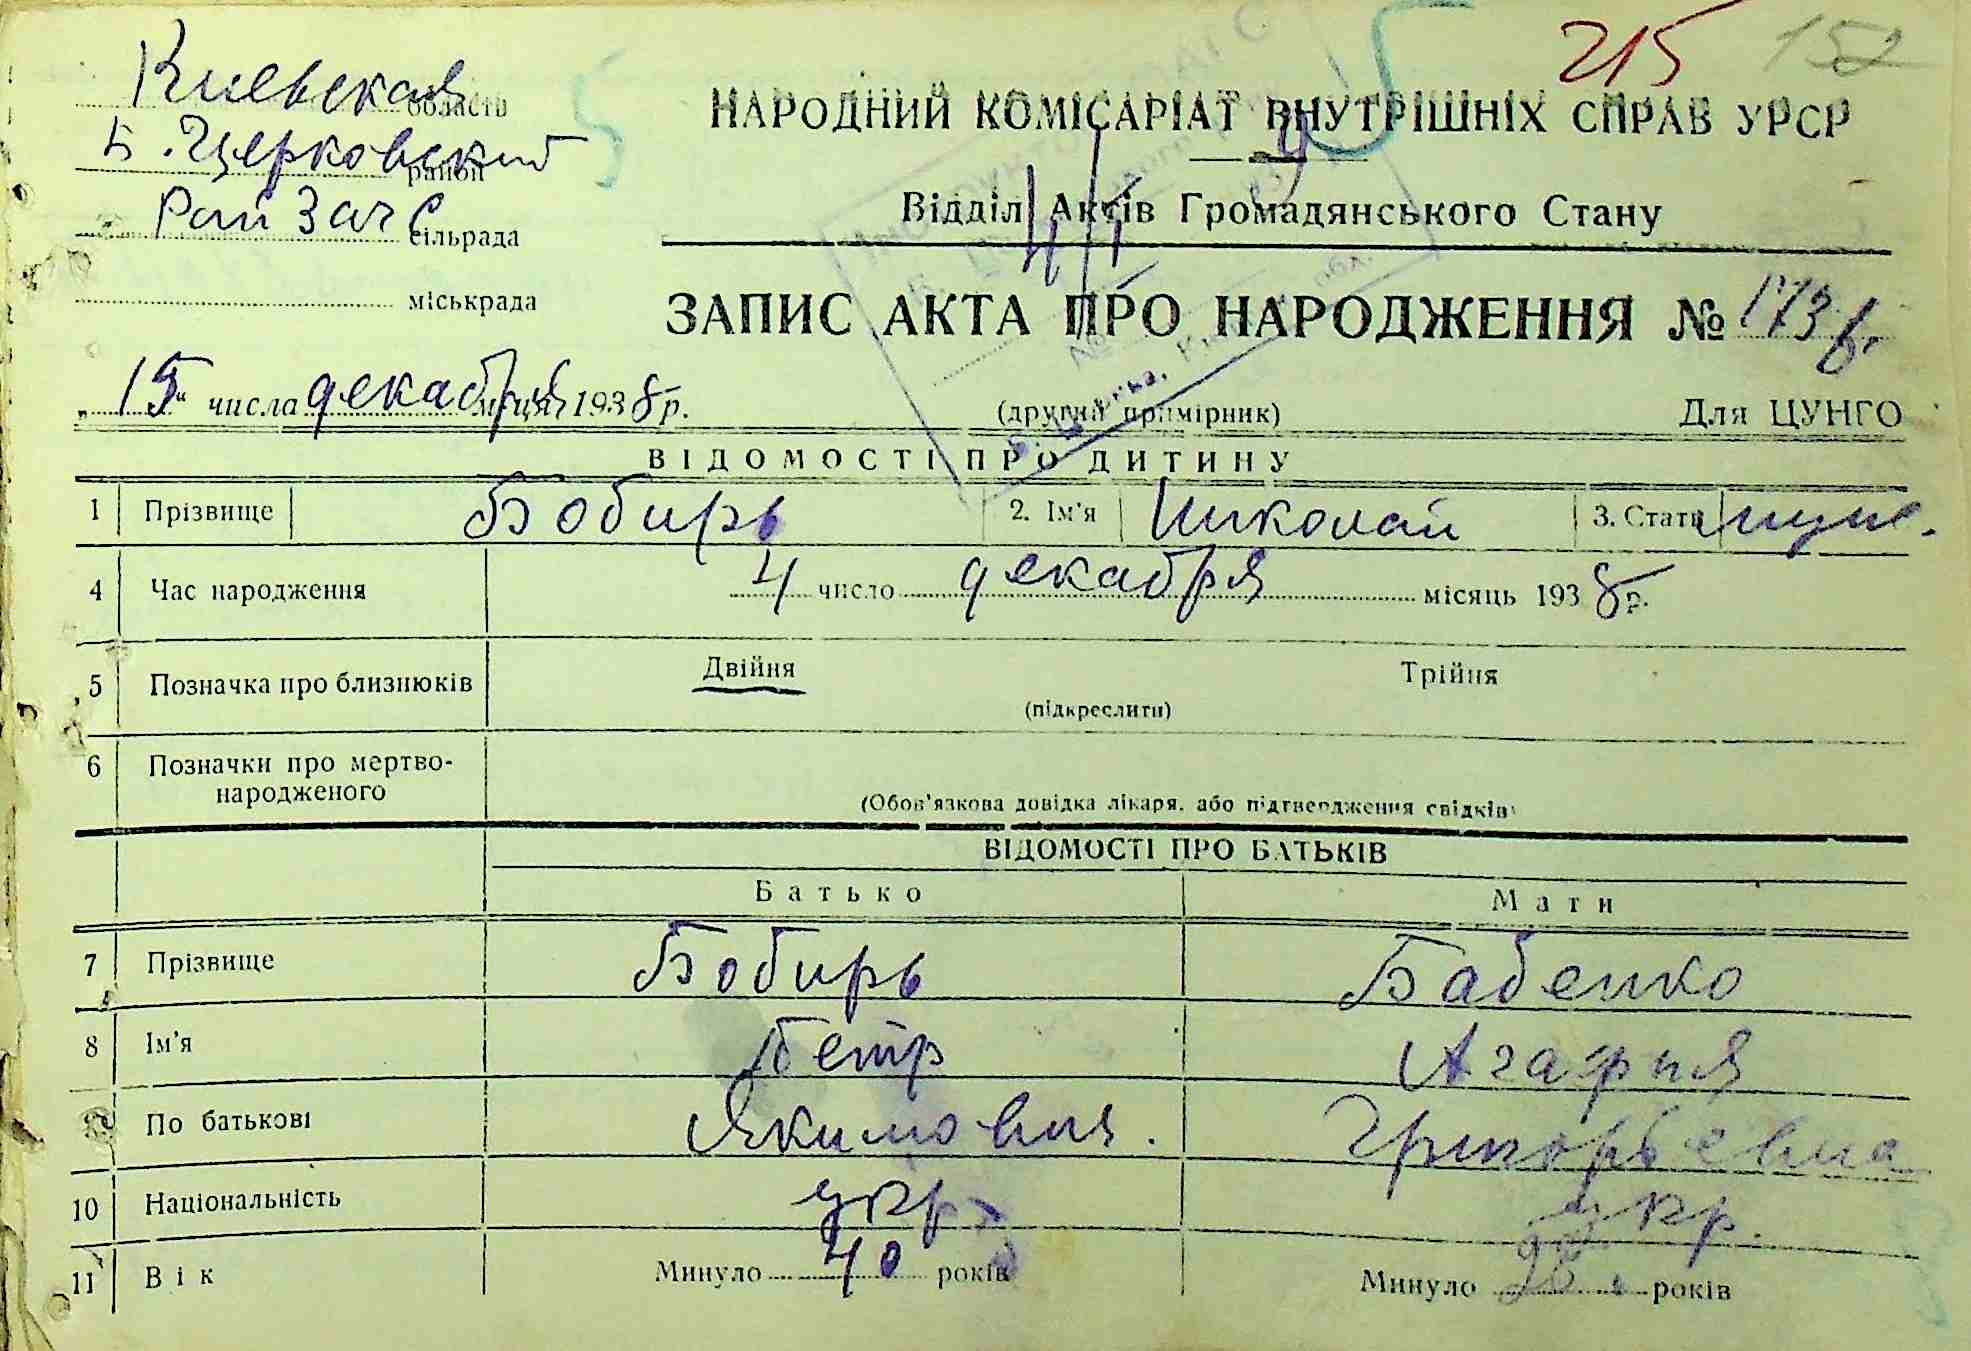 215 152
Киевская область
Б. Церковский район
Рай Загс сільрада
міськрада
НАРОДНИЙ КОМІСАРІАТ ВНУТРІШНІХ СПРАВ УРСР
Відділ Актів Громадянського Стану
ЗАПИС АКТА ПРО НАРОДЖЕННЯ №
„15" числа декабря місяця 1938 р.
(другий примірник)
Для ЦУНГО
ВІДОМОСТІ ПРО ДИТИНУ
1 Прізвище Бобирь 2. Ім'я Николай 3. Стать муж.
4 Час народження 4 число декабря місяць 1938 р.
5 Позначка про близнюків Двійня Трійня
(підкреслити)
6 Позначки про мертво-
народженого
(Обов'язкова довідка лікаря, або підтвердження свідків)
ВІДОМОСТІ ПРО БАТЬКІВ
Батько Мати
7 Прізвище Бобирь Бабенко
8 Ім'я Петр Агафия
9 По батькові Якимович. Григорьевна
10 Національність укр. укр.
11 Вік Минуло 40 років Минуло років